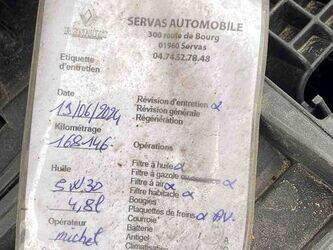 SERVAS AUTOMOBILE
RENAULT
300 route de Bourg
01960 Servas
04.74.52.78.48
Etiquette
d'entretien
Date
13/06/2024
Révision d'entretien α
Révision générale
Régénération
Kilométrage
168146
Opérations
Huile
5W30
4,8l
Filtre à huile α
Filtre à gazole α
Filtre à air α
Filtre habitacle α
Bougies
Plaquettes de freins α AV.
Courroie
Batterie
Antigel
Climatisation
Opérateur
michel